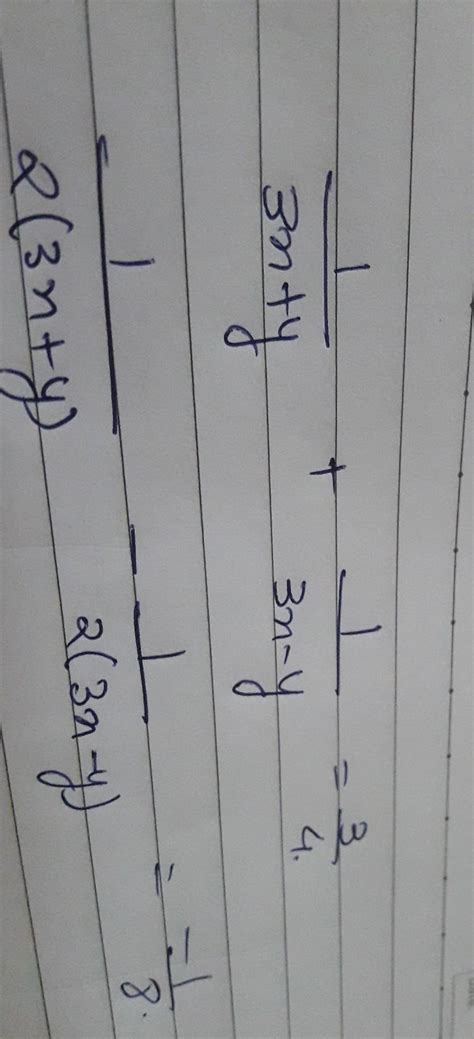 1/(3x+y) + 1/(3x-y) = 3/4.
1/(2(3x+y)) - 1/(2(3x-y)) = -1/8.